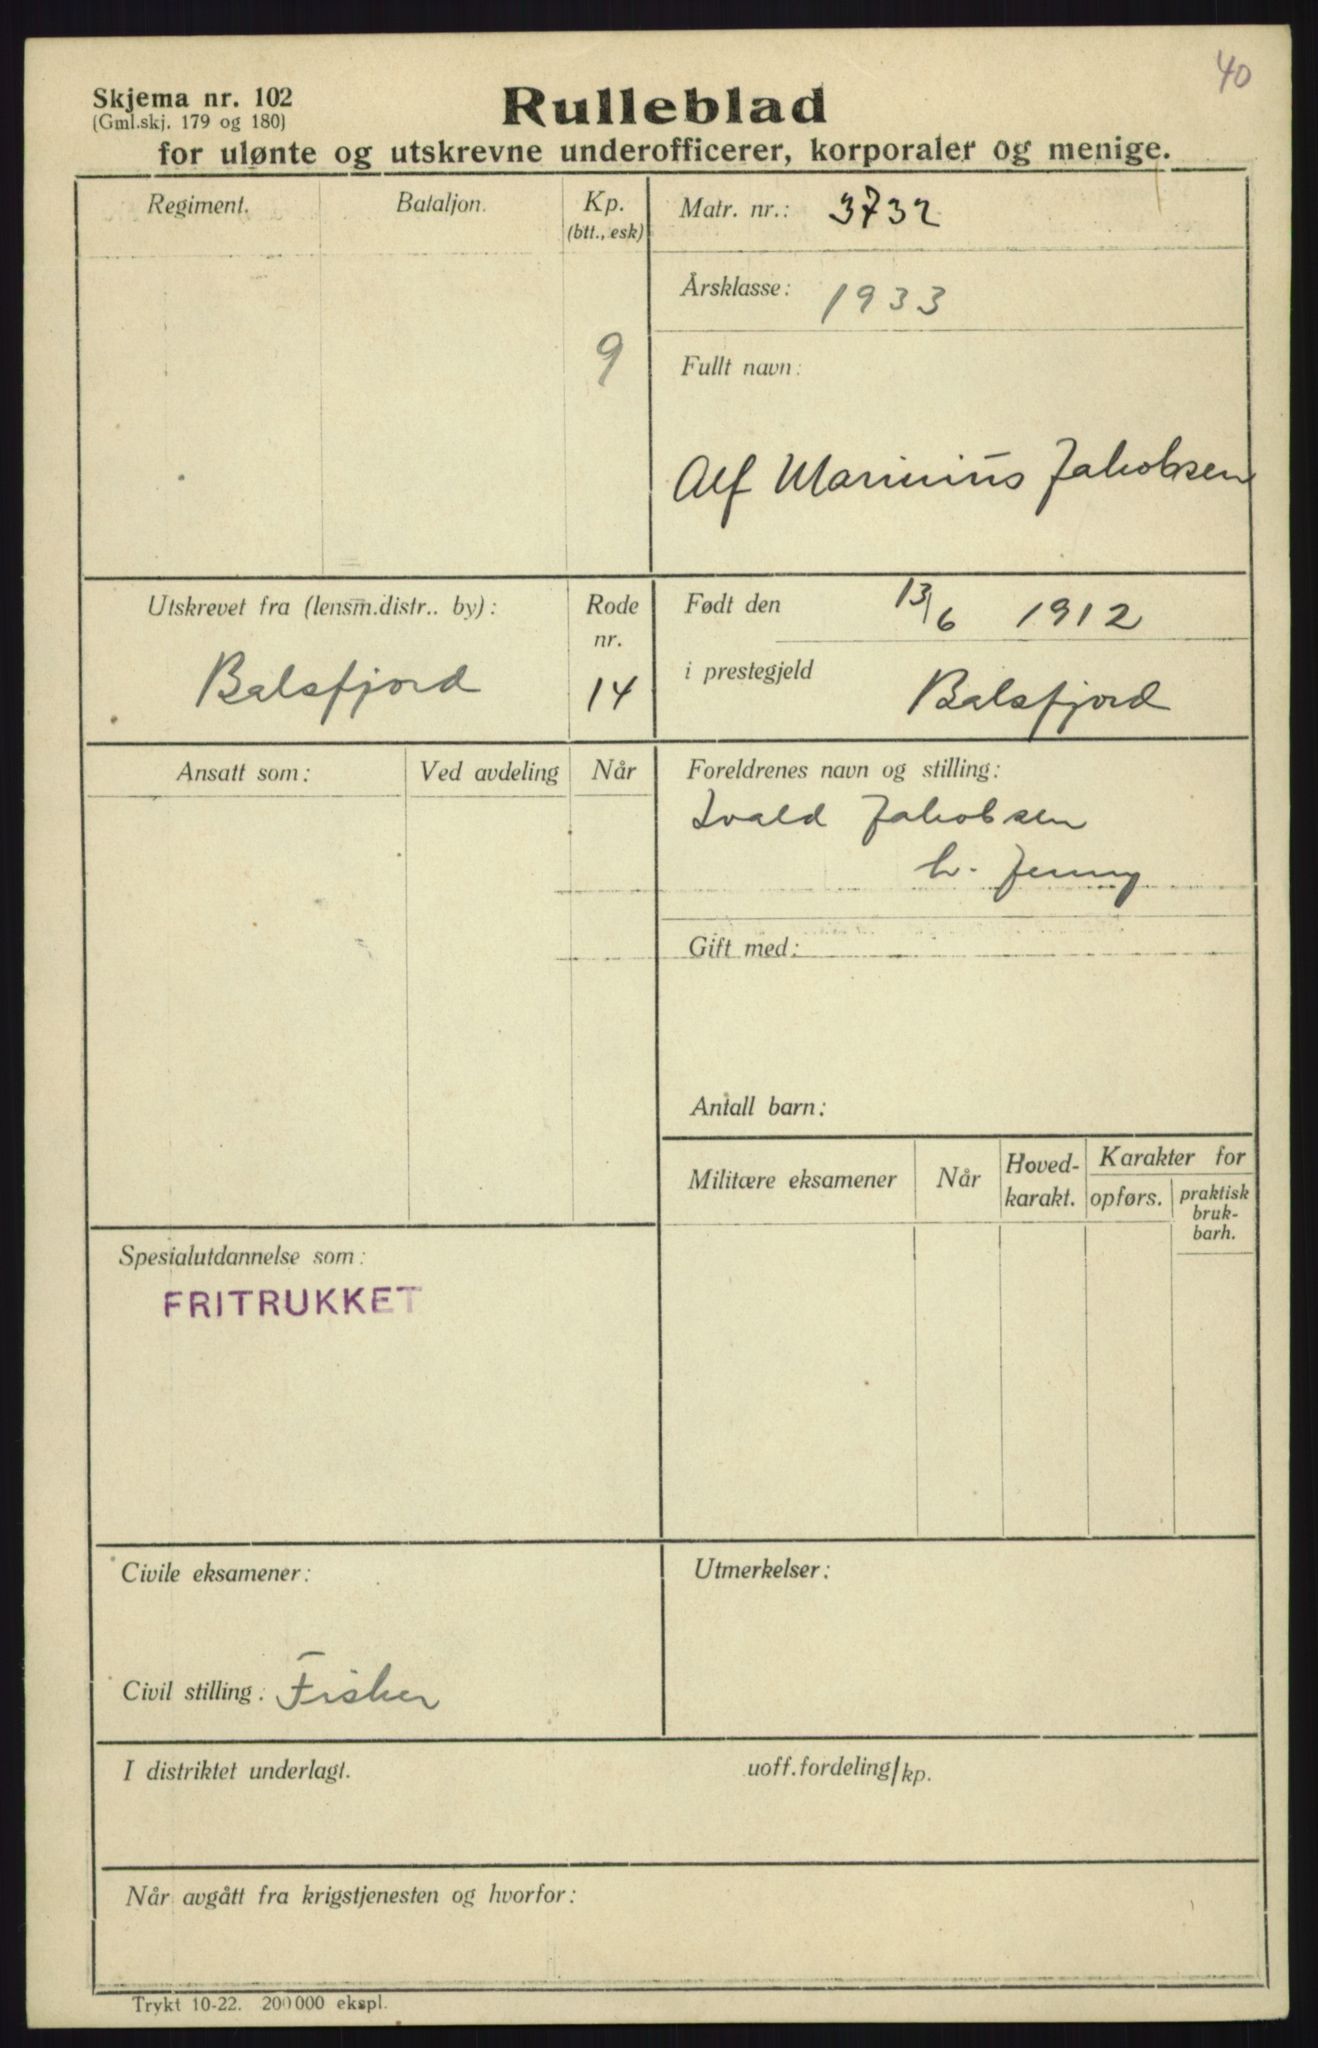 40
Skjema nr. 102
(Gml.skj. 179 og 180)
Rulleblad
for ulønte og utskrevne underofficerer, korporaler og menige.
Regiment.
Bataljon.
Kp.
(btt., esk)
9
Matr. nr.: 3732
Årsklasse: 1933
Fullt navn:
Alf Marinius Jakobsen
Utskrevet fra (lensm.distr.. by):
Balsfjord
Rode
nr.
14
Født den 13/6 1912
i prestegjeld Balsfjord
Ansatt som:
Ved avdeling
Når
Foreldrenes navn og stilling:
Ivald Jakobsen
h. Jenny
Gift med:
Antall barn:
Militære eksamener
Når
Hoved-
karakt.
Karakter for
opførs.
praktisk
bruk-
barh.
Spesialutdannelse som:
FRITRUKKET
Civile eksamener:
Civil stilling: Fisker
Utmerkelser:
I distriktet underlagt. uoff.fordeling/kp.
Når avgått fra krigstjenesten og hvorfor:
Trykt 10-22. 200000 ekspl.